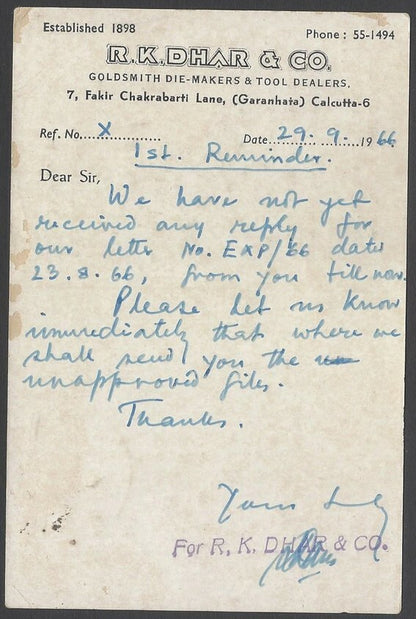 Established 1898
Phone : 55-1494
R.K.DHAR & CO.
GOLDSMITH DIE-MAKERS & TOOL DEALERS.
7, Fakir Chakrabarti Lane, (Garanhata) Calcutta-6
Ref. No. X Date 29. 9. 1966
1st. Reminder.
Dear Sir,
We have not yet
received any reply for
our letter No. EXP/66 date
23.8.66, from you till now.
Please let us know
immediately that where we
shall send you the
unapproved files.
Thanks.
Yours
For R. K. DHAR & CO.